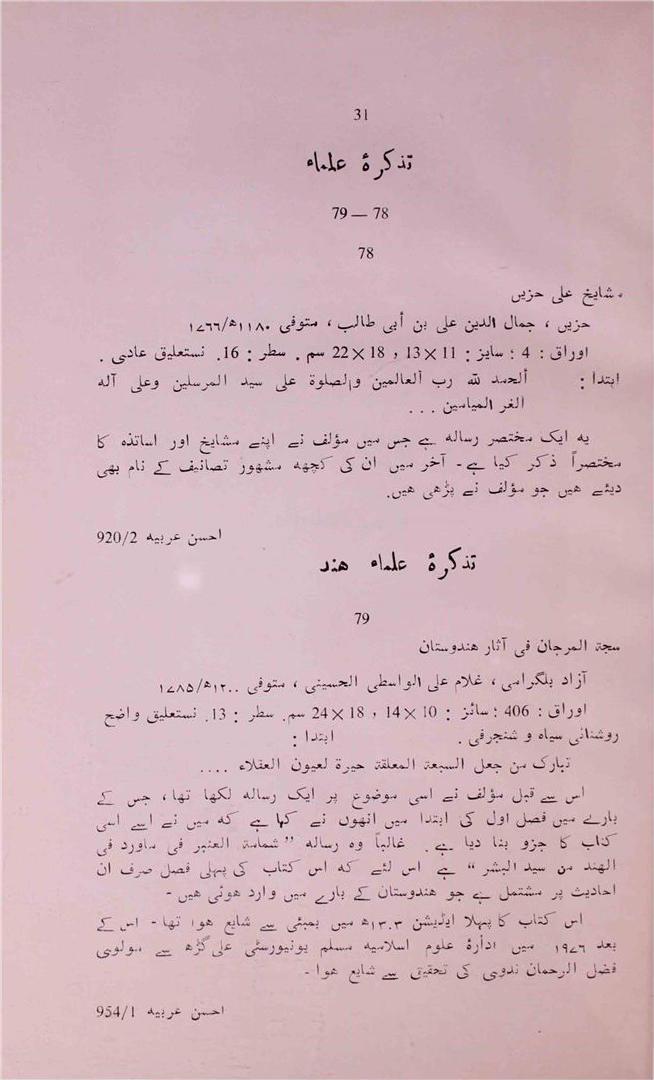 31
تذکرۂ علماء
78 — 79
78
مشایخ علی حزیں
حزیں ، جمال الدین علی بن أبی طالب ، متوفی ۱۱۸۰ھ/۱۷۶۶
اوراق : 4 ؛ سایز : 11 × 13 ، 18 × 22 سم . سطر : 16. نستعلیق عادی .
ابتدا : ألحمد للہ رب ألعالمین والصلوۃ علی سید المرسلین وعلی آلہ
الغر المیامین ...
یہ ایک مختصر رسالہ ہے جس میں مؤلف نے اپنے مشایخ اور اساتذہ کا
مختصراً ذکر کیا ہے ۔ آخر میں ان کی کچھہ مشہور تصانیف کے نام بھی
دیئے ھیں جو مؤلف نے پڑھی ھیں.
احسن عربیہ 920/2
تذکرۂ علماء ھند
79
سجۃ المرجان فی آثار ھندوستان
آزاد بلگرامی ، غلام علی الواسطی الحسینی ، متوفی ۱۲۰۰ھ/۱۷۸۵
اوراق : 406 ؛ سائز : 10 × 14 ، 18 × 24 سم. سطر : 13. نستعلیق واضح
روشنائی سیاہ و شنجرفی . ابتدا :
تبارک من جعل السبعۃ المعلقۃ حیرۃ لعیون العقلاء ....
اس سے قبل مؤلف نے اسی موضوع پر ایک رسالہ لکھا تھا ، جس کے
بارے میں فصل اول کی ابتدا میں انھوں نے کہا ہے کہ میں نے اسے اسی
کتاب کا جزو بنا دیا ہے . غالباً وہ رسالہ ”شمامۃ العنبر فی ماورد فی
الھند من سید البشر“ ہے اس لئے کہ اس کتاب کی پہلی فصل صرف ان
احادیث پر مشتمل ہے جو ھندوستان کے بارے میں وارد ھوئی ھیں ۔
اس کتاب کا پہلا ایڈیشن ۱۳۰۳ھ میں بمبئی سے شایع ھوا تھا ۔ اس کے
بعد ۱۹۷۶ میں ادارۂ علوم اسلامیہ مسلم یونیورسٹی علی گڑھ سے مولوی
فضل الرحمان ندوی کی تحقیق سے شایع ھوا ۔
احسن عربیہ 954/1